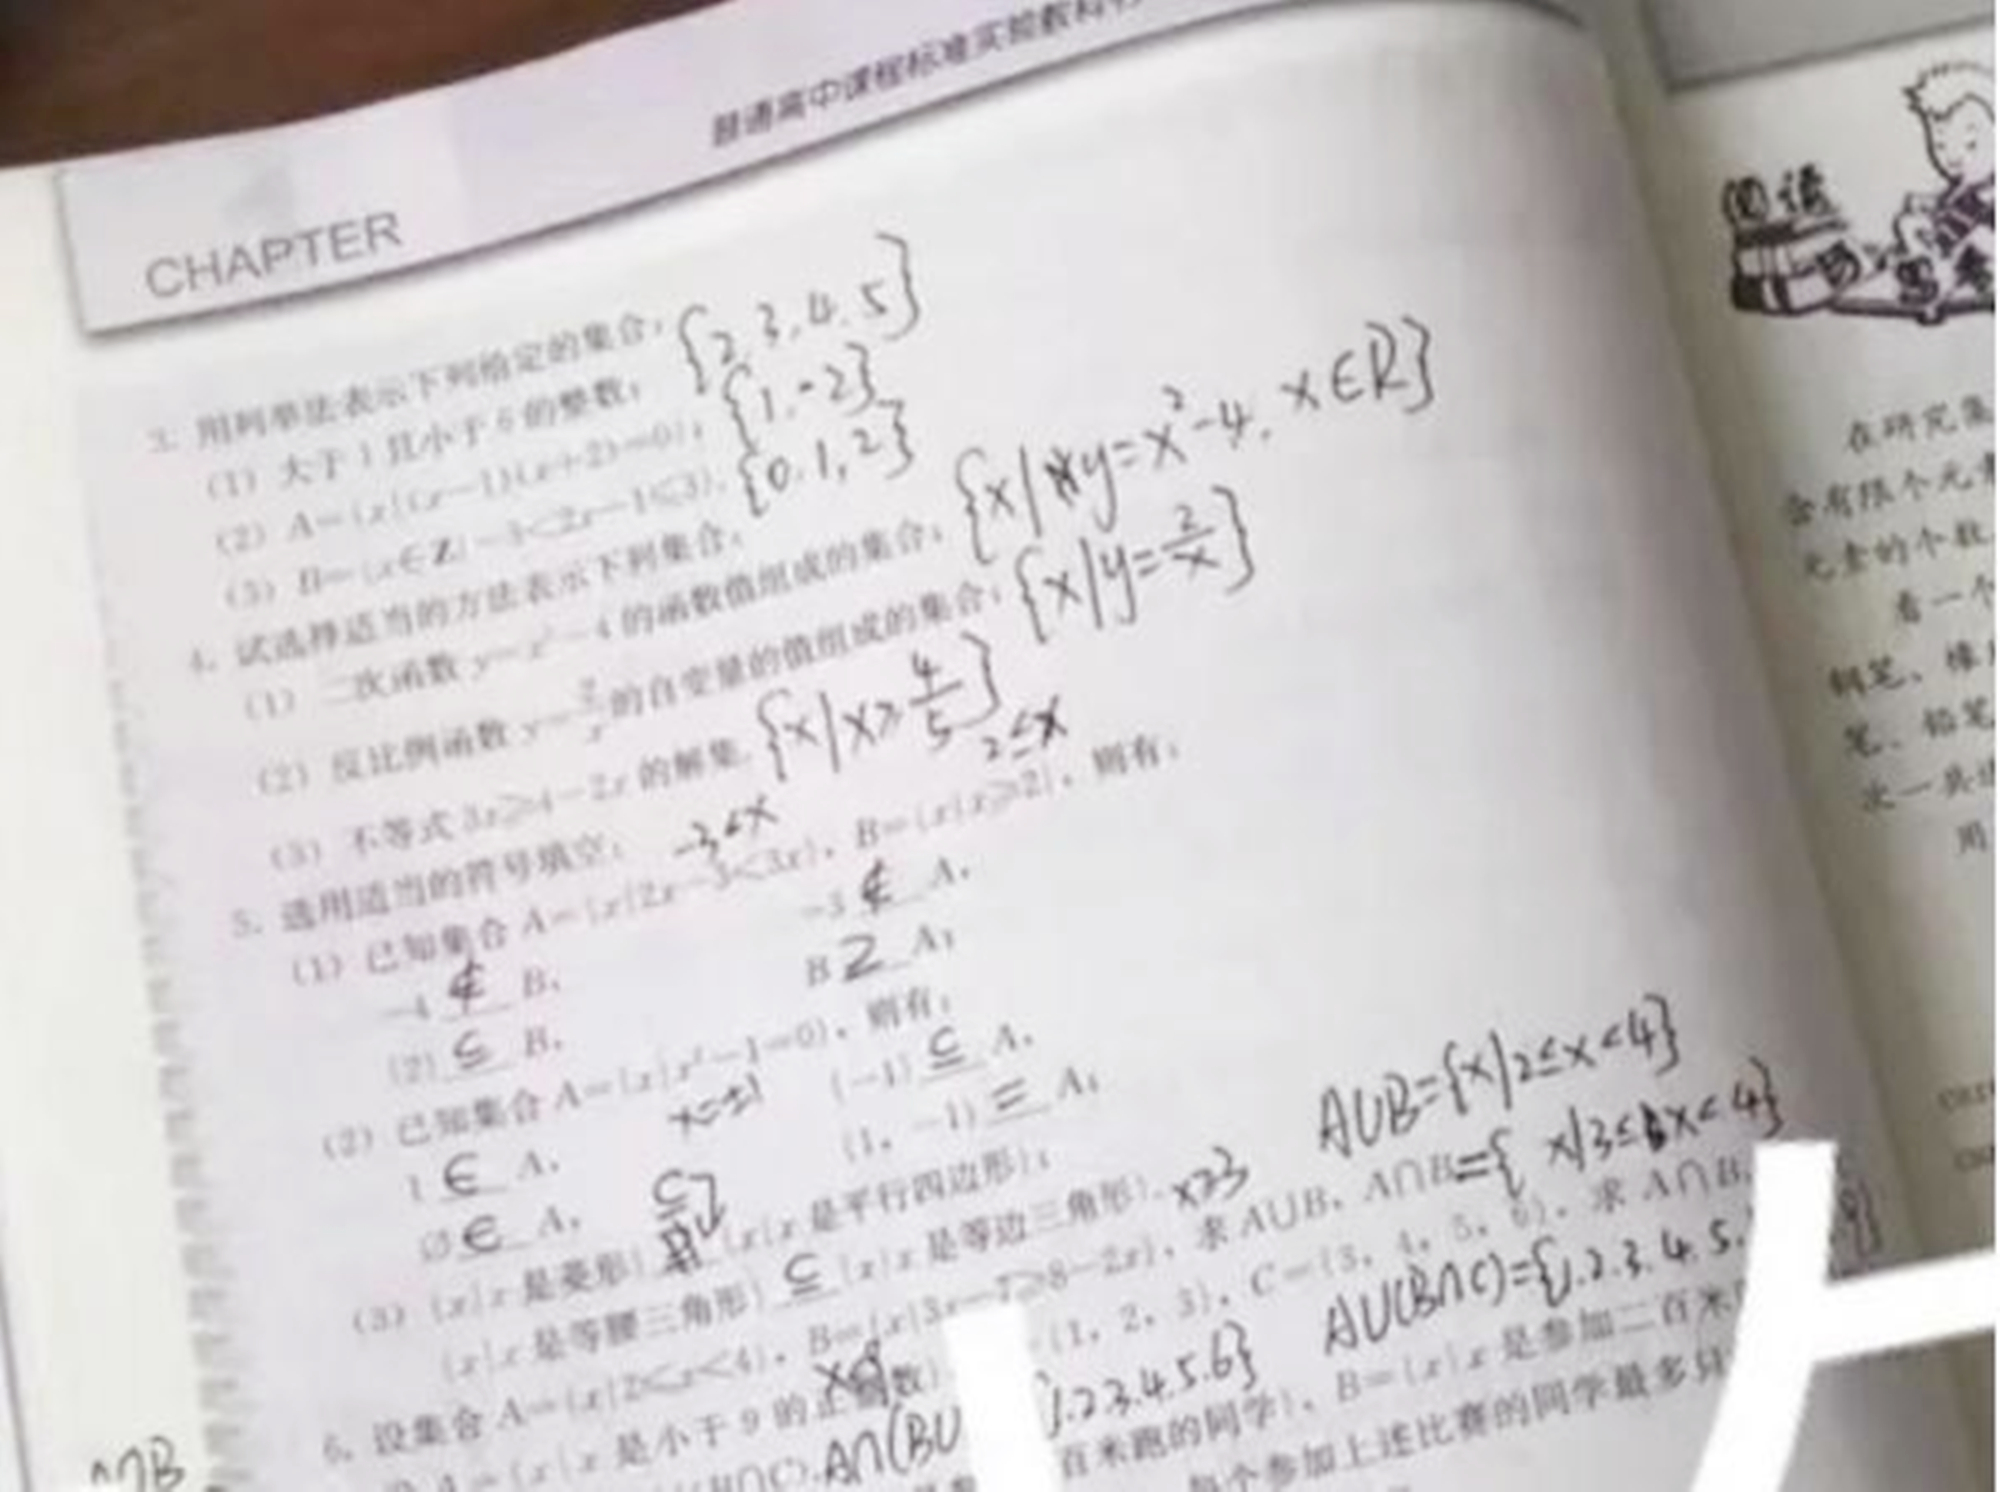 普通高中课程标准实验教科书
CHAPTER
3. 用列举法表示下列给定的集合: {2, 3, 4, 5}
(1) 大于1且小于6的整数; {1, -2}
(2) A={x|(x-1)(x+2)=0}; {0, 1, 2}
(3) B={x∈Z|-3<2x-1≤3}.
4. 试选择适当的方法表示下列集合: {x|y=x²-4, x∈R}
(1) 二次函数y=x²-4的函数值组成的集合; {x|y=2/x}
(2) 反比例函数y=2/x的自变量的值组成的集合;
(3) 不等式3x≥4-2x的解集. {x|x≥4/5}
5. 选用适当的符号填空: -3<x 2≤x
(1) 已知集合A={x|2x-3<3x}, B={x|x≥2}, 则有:
-4 ∉ B, -3 ∉ A,
{2} ⊆ B, B ⊇ A;
(2) 已知集合A={x|x²-1=0}, 则有:
x=±1
1 ∈ A, {-1} ⊆ A,
∅ ∈ A, {1, -1} = A;
(3) {x|x是菱形} ⊆ {x|x是平行四边形};
{x|x是等腰三角形} ⊆ {x|x是等边三角形}. x≥3
A∪B={x|2≤x<4}
6. 设集合A={x|2≤x<4}, B={x|3x-7≥8-2x}, 求A∪B, A∩B={ x|3≤x<4}
A={x|x是小于9的正 数} {1, 2, 3}, C={3, 4, 5, 6}, 求A∩B
A∩(B∪ 1.2.3.4.5.6} A∪(B∩C)={1.2.3.4.5.
百米跑的同学}, B={x|x是参加二百米
每个参加上述比赛的同学最多只
∩B
阅读
在研究集
含有限个元素
元素的个数
看一个
钢笔、橡皮
笔、铅笔
水一共
用